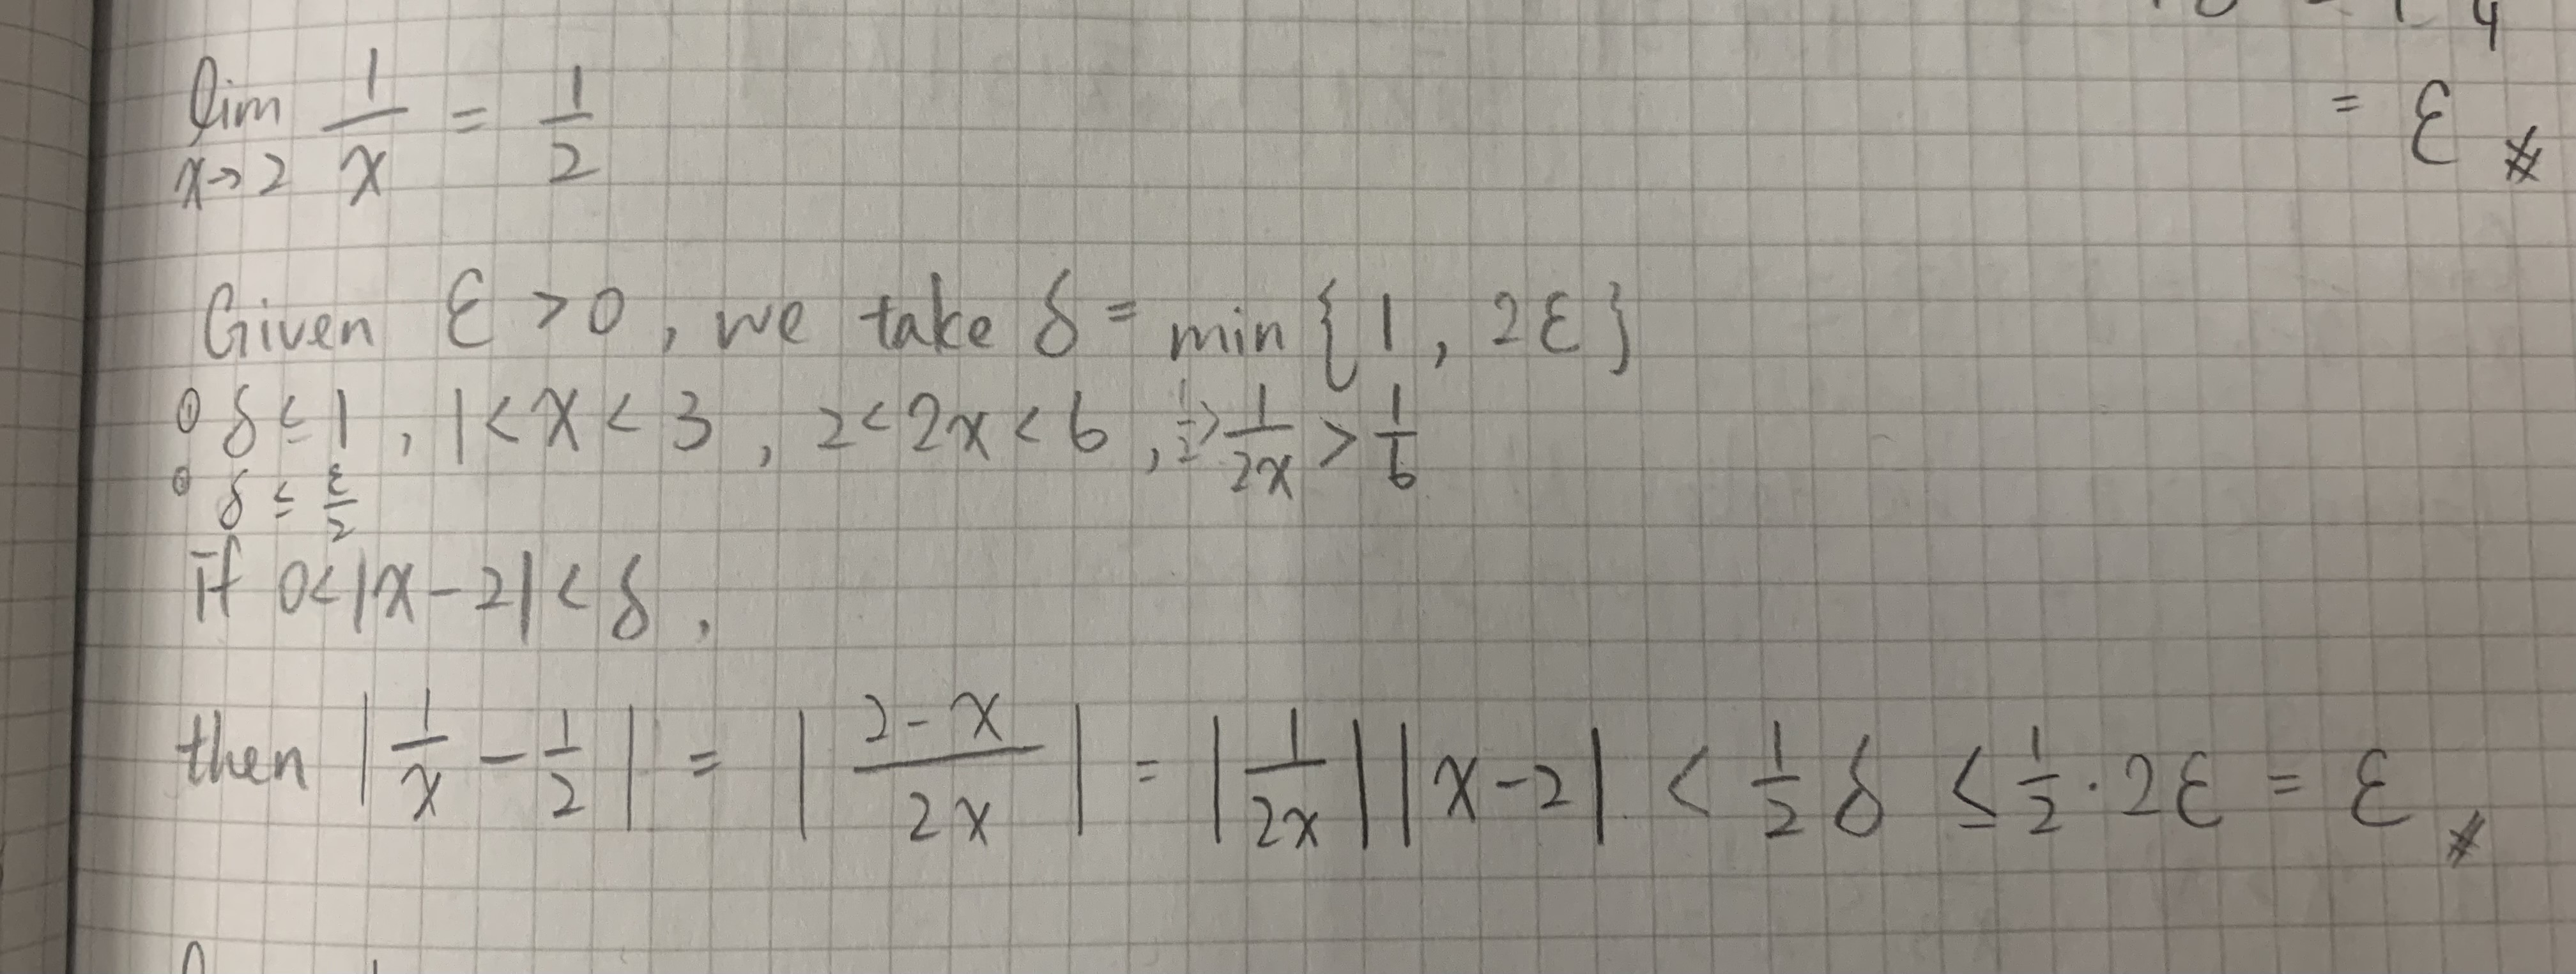 lim x→2 1/x = 1/2
= ε #
Given ε > 0, we take δ = min {1, 2ε}
① δ ≤ 1, 1 < x < 3, 2 < 2x < 6, 1/2 > 1/2x > 1/6
δ ≤ ε/2
if 0 < |x - 2| < δ,
then |1/x - 1/2| = |2 - x / 2x| = |1/2x| |x - 2| < 1/2 δ ≤ 1/2 · 2ε = ε #